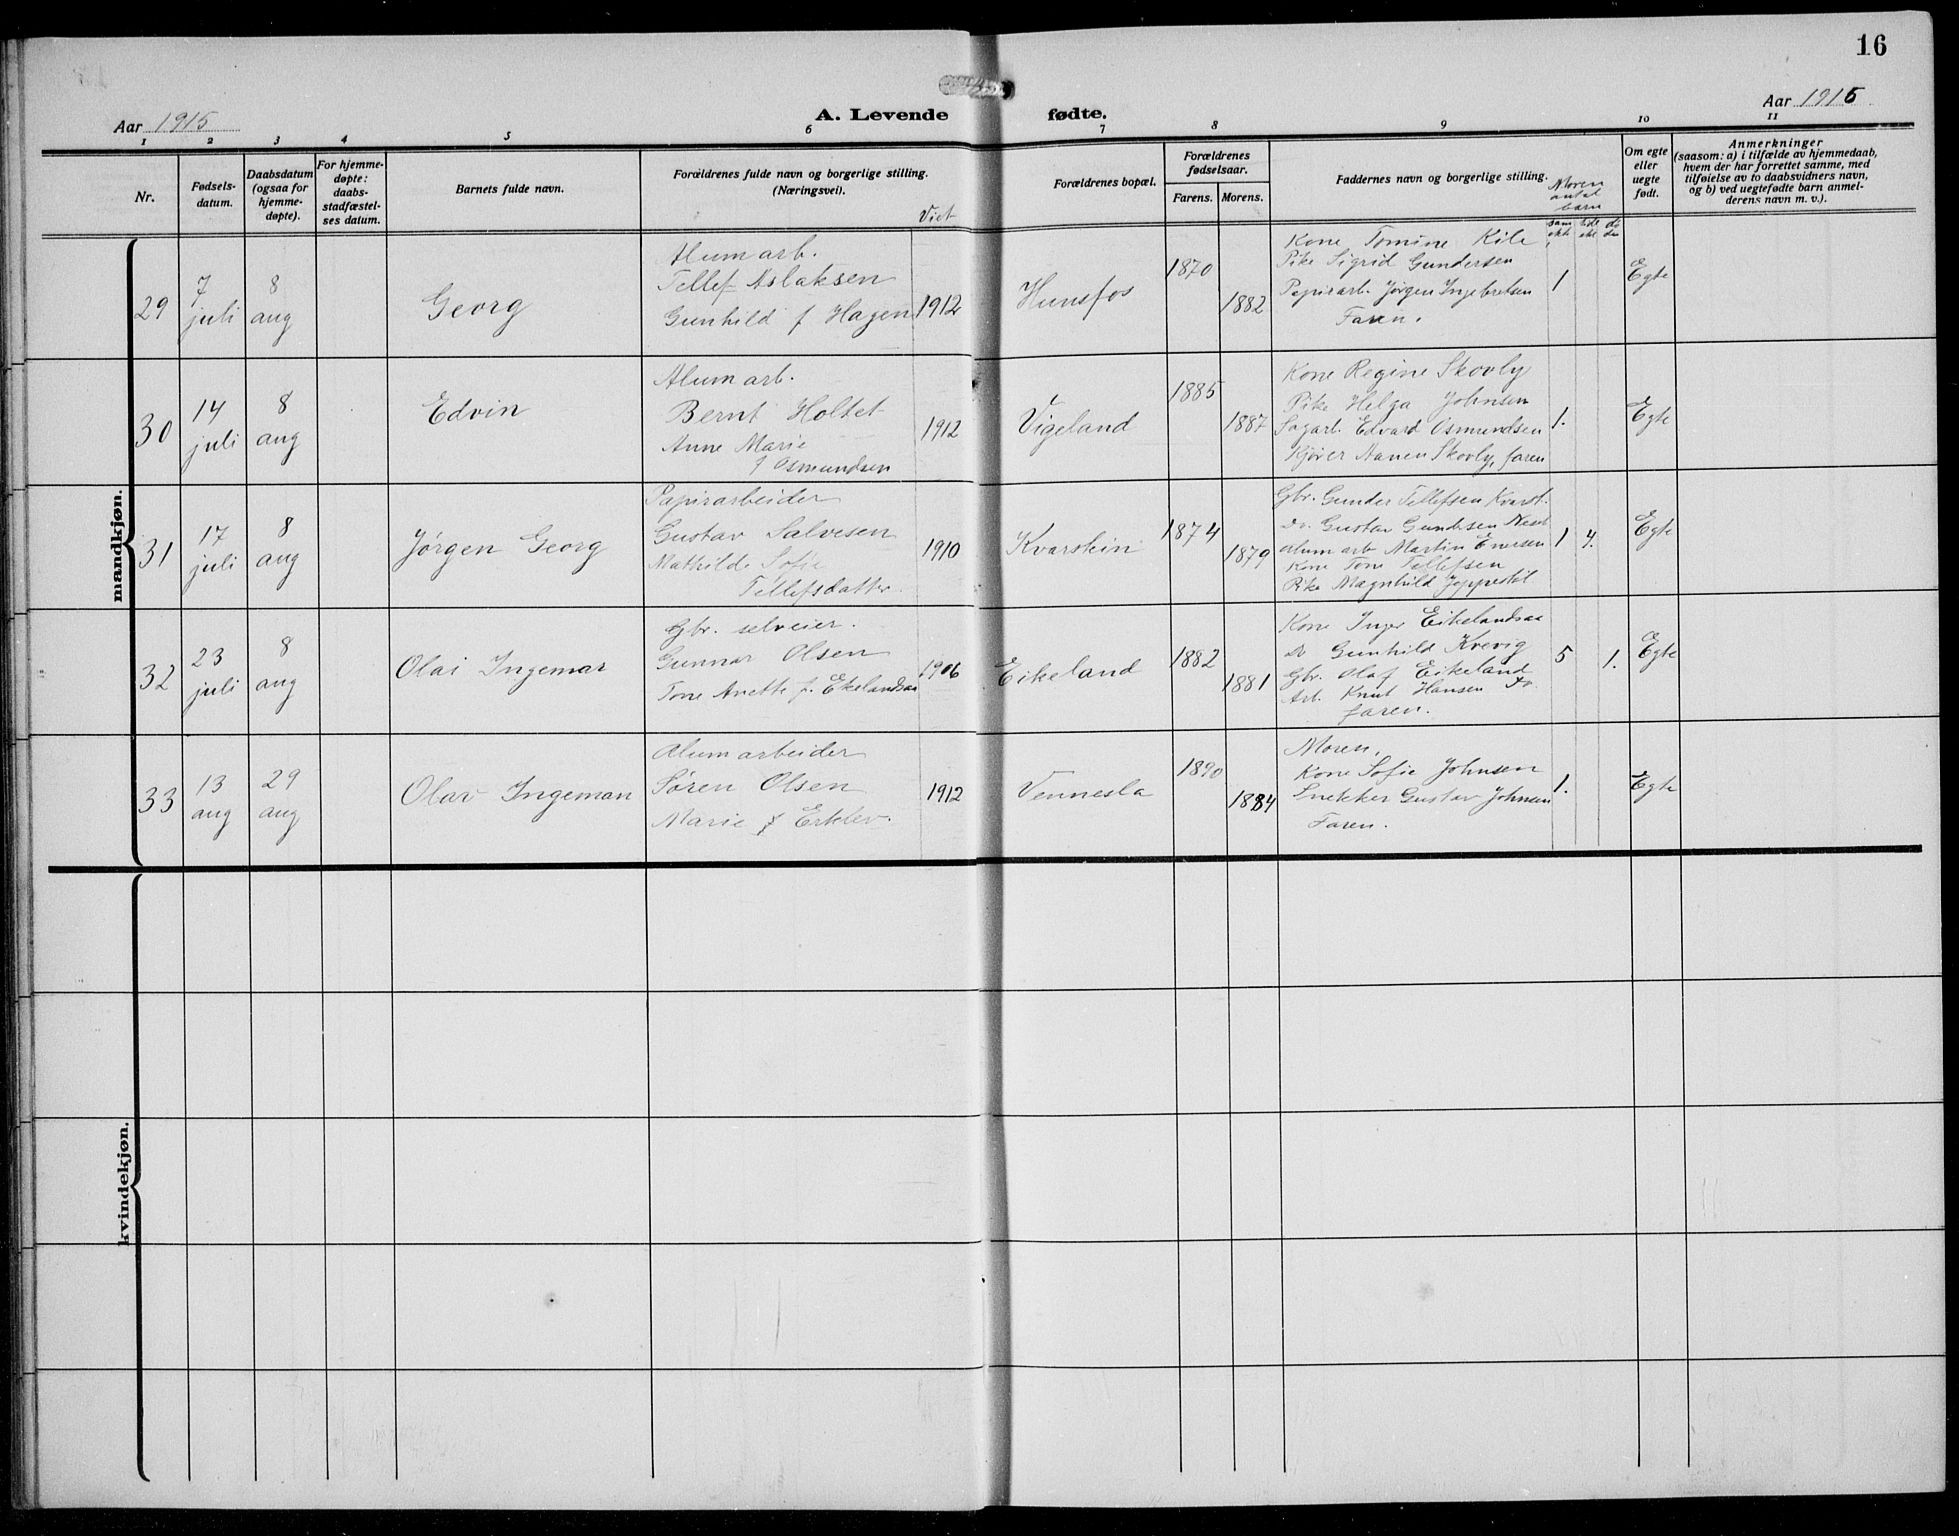 16
Aar 1915
A. Levende fødte.
Aar 1915
1 2 3 4 5 6 7 8 9 10 11
Nr.
Fødsels-
datum.
Daabsdatum
(ogsaa for
hjemme-
døpte).
For hjemme-
døpte:
daabs-
stadfæstel-
ses datum.
Barnets fulde navn.
Forældrenes fulde navn og borgerlige stilling.
(Næringsvei).
Viet
Forældrenes bopæl.
Forældrenes
fødselsaar.
Farens. Morens.
Faddernes navn og borgerlige stilling.
Moren
antal
barn
Om egte
eller
uegte
født.
Anmerkninger
(saasom: a) i tilfælde av hjemmedaab,
hvem der har forrettet samme, med
tilføielse av to daabsvidners navn,
og b) ved uegtefødte barn anmel-
derens navn m. v.).
mandkjøn.
29
7
juli
8
aug
Georg
Alum arb.
Tellef Aslaksen
Gunhild f Hagen
1912
Hunsfos
1870
1882
Kone Tomine Kile
Pike Sigrid Gundersen
Papirarb. Jørgen Ingebretsen
Faren.
1
Egte
30
14
juli
8
aug
Edvin
Alum arb.
Bernt Holtet
Anne Marie
f Osmundsen
1912
Vigeland
1885
1887
Kone Regine Skovly
Pike Helga Johnsen
Sagarb. Edvard Osmundsen
Kjører Nanen Skovly, faren
1.
Egte
31
17
juli
8
aug
Jørgen Georg
Papirarbeider
Gustav Salvesen
Mathilde Sofie
Tellefsdatter.
1910
Kvarstein
1874
1879
Gbr. Gunder Tellefsen Kvarst.
Do. Gustav Gundersen
Alum arb Martin Enersen
Kone Tone Tellefsen
Pike Magnhild Jeppestøl
1 4.
Egte
32
23
juli
8
aug
Olai Ingemar
Gbr. selveier.
Gunnar Olsen
Tone Anette f. Ekelandsaa
1906
Eikeland
1882
1881
Kone Inger Eikelandsaa
Do Gunhild Kvevig
Gbr. Olaf Eikeland
Arb. Knut Hansen Do.
faren.
5 1.
Egte
33
13
aug
29
aug
Olav Ingeman
Alum arbeider
Søren Olsen
Marie f Erklev.
1912
Vennesla
1890
1884
Moren.
Kone Sofie Johnsen
Snekker Gustav Johnsen
Faren.
1.
Egte
kvindekjøn.